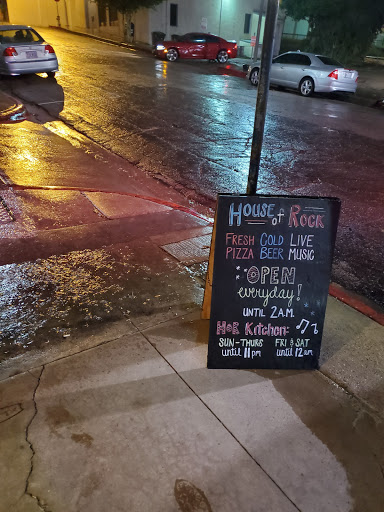 House of Rock
Fresh Cold Live
Pizza Beer Music
OPEN
everyday!
UNTIL 2 A.M.
HOR Kitchen:
SUN-THURS FRI & SAT
until 11pm until 12am